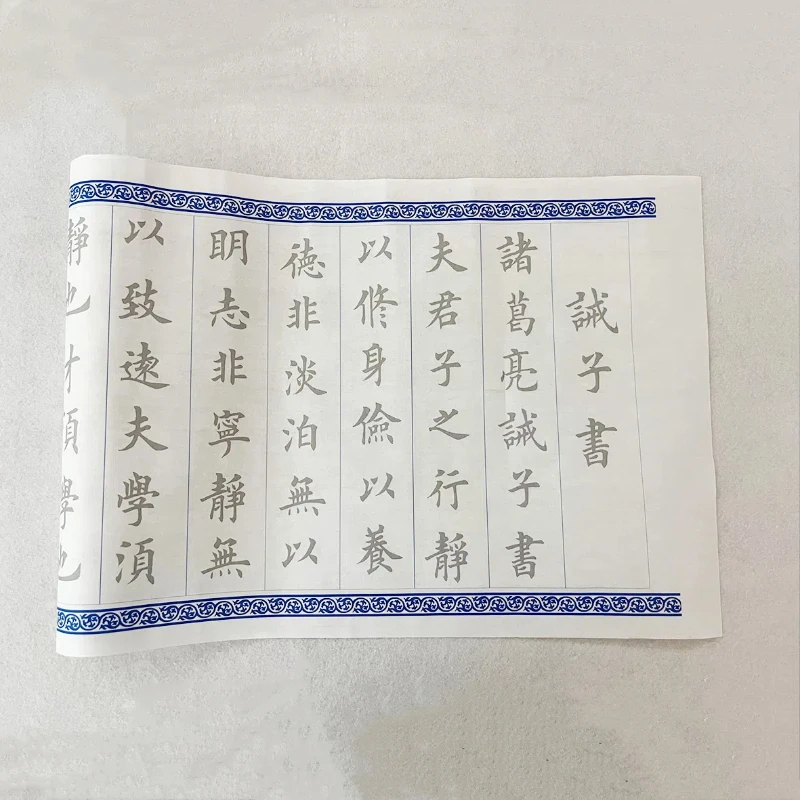 誡子書
諸葛亮誡子書
夫君子之行靜
以修身儉以養
徳非淡泊無以
眀志非寧靜無
以致遠夫學湏
靜也才湏學也